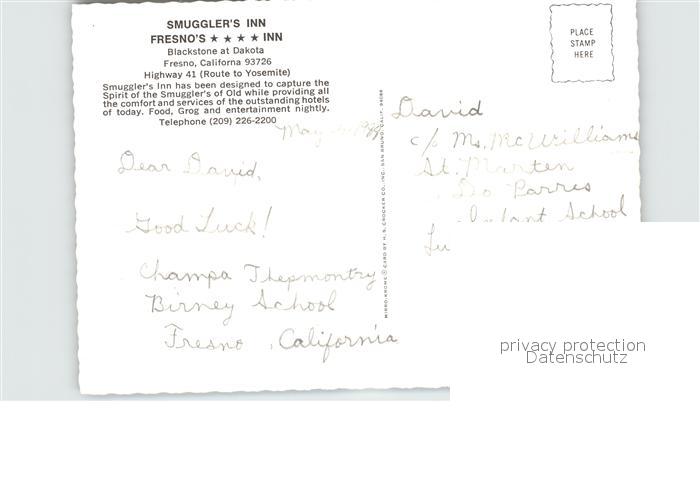 SMUGGLER'S INN
FRESNO'S ★ ★ ★ ★ INN
Blackstone at Dakota
Fresno, Californa 93726
Highway 41 (Route to Yosemite)
Smuggler's Inn has been designed to capture the
Spirit of the Smuggler's of Old while providing all
the comfort and services of the outstanding hotels
of today. Food, Grog and entertainment nightly.
Telephone (209) 226-2200
May
Dear David,
Good Luck!
Champa Thepmontry
Birney School
Fresno, California
MIRRO-KROME ® CARD BY H. S. CROCKER CO., INC., SAN BRUNO, CALIF. 94066
PLACE
STAMP
HERE
David
c/o Ms. McWilliams
St. Marten
Do Parris
School
privacy protection
Datenschutz